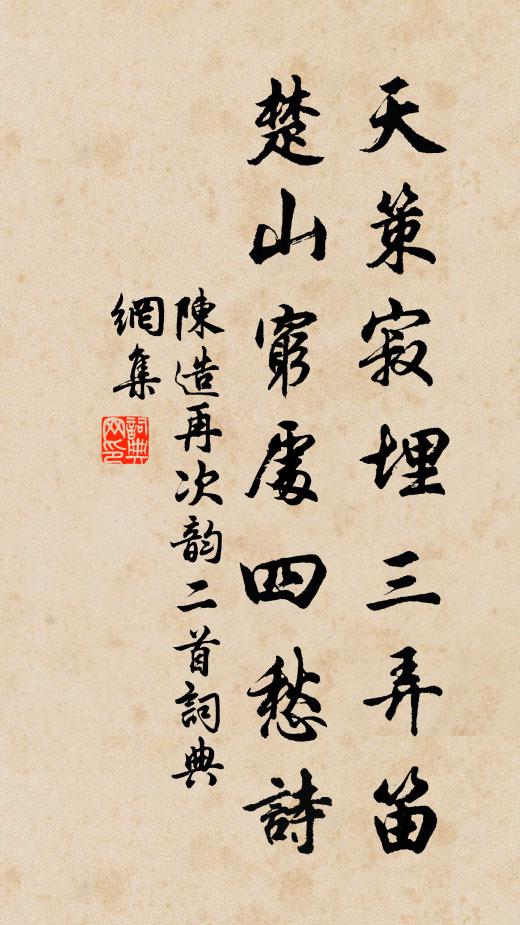 天策寂埋三弄笛
楚山窮處四愁詩
陳造再次韵二首詞典
網集
詞典网印